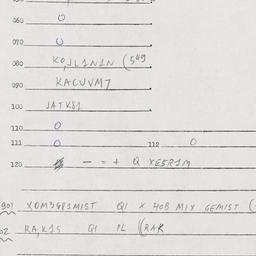 060 0
070 0
080 KO,JL1N1N (549
090 KACUVM7
100 JATK81
110 0
111 0 112 0
120 - = + Q YE5R1M
901 XOM3G81MIST Q1 X HOB MIX GEMIST (
02 RA,K1S Q1 PL ((RAR